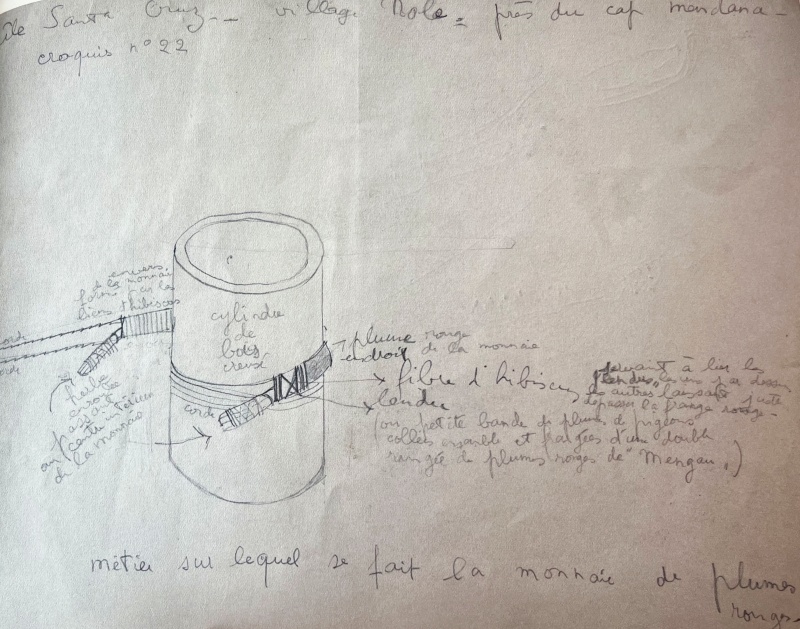 île Santa Cruz -- village Nole = près du cap mendana -
croquis n° 22
envers
de la monnaie
formé par les
liens d'hibiscus
corde
corde
cylindre
de
bois
creusé
plume rouge
endroit de la monnaie
fibre d'hibiscus servant à lier les
les autres laissant juste
dépasser la frange rouge -
(ou petite bande de plumes de pigeons
collées ensemble et frangées d'un double
rangée de plumes rouges de "Mengau")
corde
passant
au centre intérieur
de la monnaie
métier sur lequel se fait la monnaie de plumes
rouges